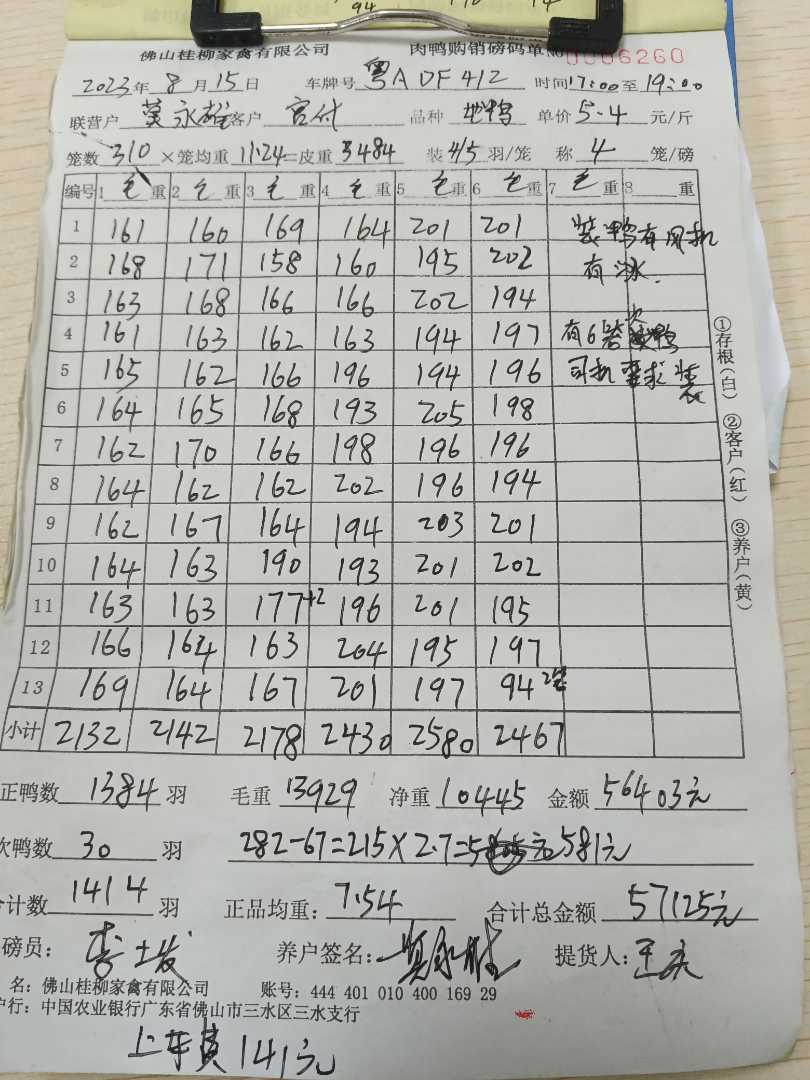 佛山桂柳家禽有限公司 肉鸭购销磅码单 NO 0006260
2023年 8月15日 车牌号 粤A DF412 时间17:00至19:00
联营户 莫永雄 客户 宫付 品种 单价 5.4 元/斤
笼数 310 ×笼均重 11.24 =皮重 3484 装 4/5 羽/笼 称 4 笼/磅
编号 1 毛 重 2 毛 重 3 毛 重 4 毛 重 5 毛 重 6 毛 重 7 毛 重 8 重
1 161 160 169 164 201 201 装鸭有风机
2 168 171 158 160 195 202 有冰.
3 163 168 166 166 202 194
4 161 163 162 163 194 197 有6笼次鸭
5 165 162 166 196 194 196 司机要求装
6 164 165 168 193 205 198
7 162 170 166 198 196 196
8 164 162 162 202 196 194
9 162 167 164 194 203 201
10 164 163 190 193 201 202
11 163 163 177+2 196 201 195
12 166 164 163 204 195 197
13 169 164 167 201 197 94 2笼
小计 2132 2142 2178 2430 2580 2467
①存根(白) ②客户(红) ③养户(黄)
正鸭数 1384 羽 毛重 13929 净重 10445 金额 56403元
次鸭数 30 羽 282-67=215×2.7= 581元
合计数 1414 羽 正品均重: 7.54 合计总金额 57125元
磅员: 李士发 养户签名: 莫永雄 提货人:
名: 佛山桂柳家禽有限公司 账号: 444 401 010 400 169 29
户行: 中国农业银行广东省佛山市三水区三水支行
上车费141元